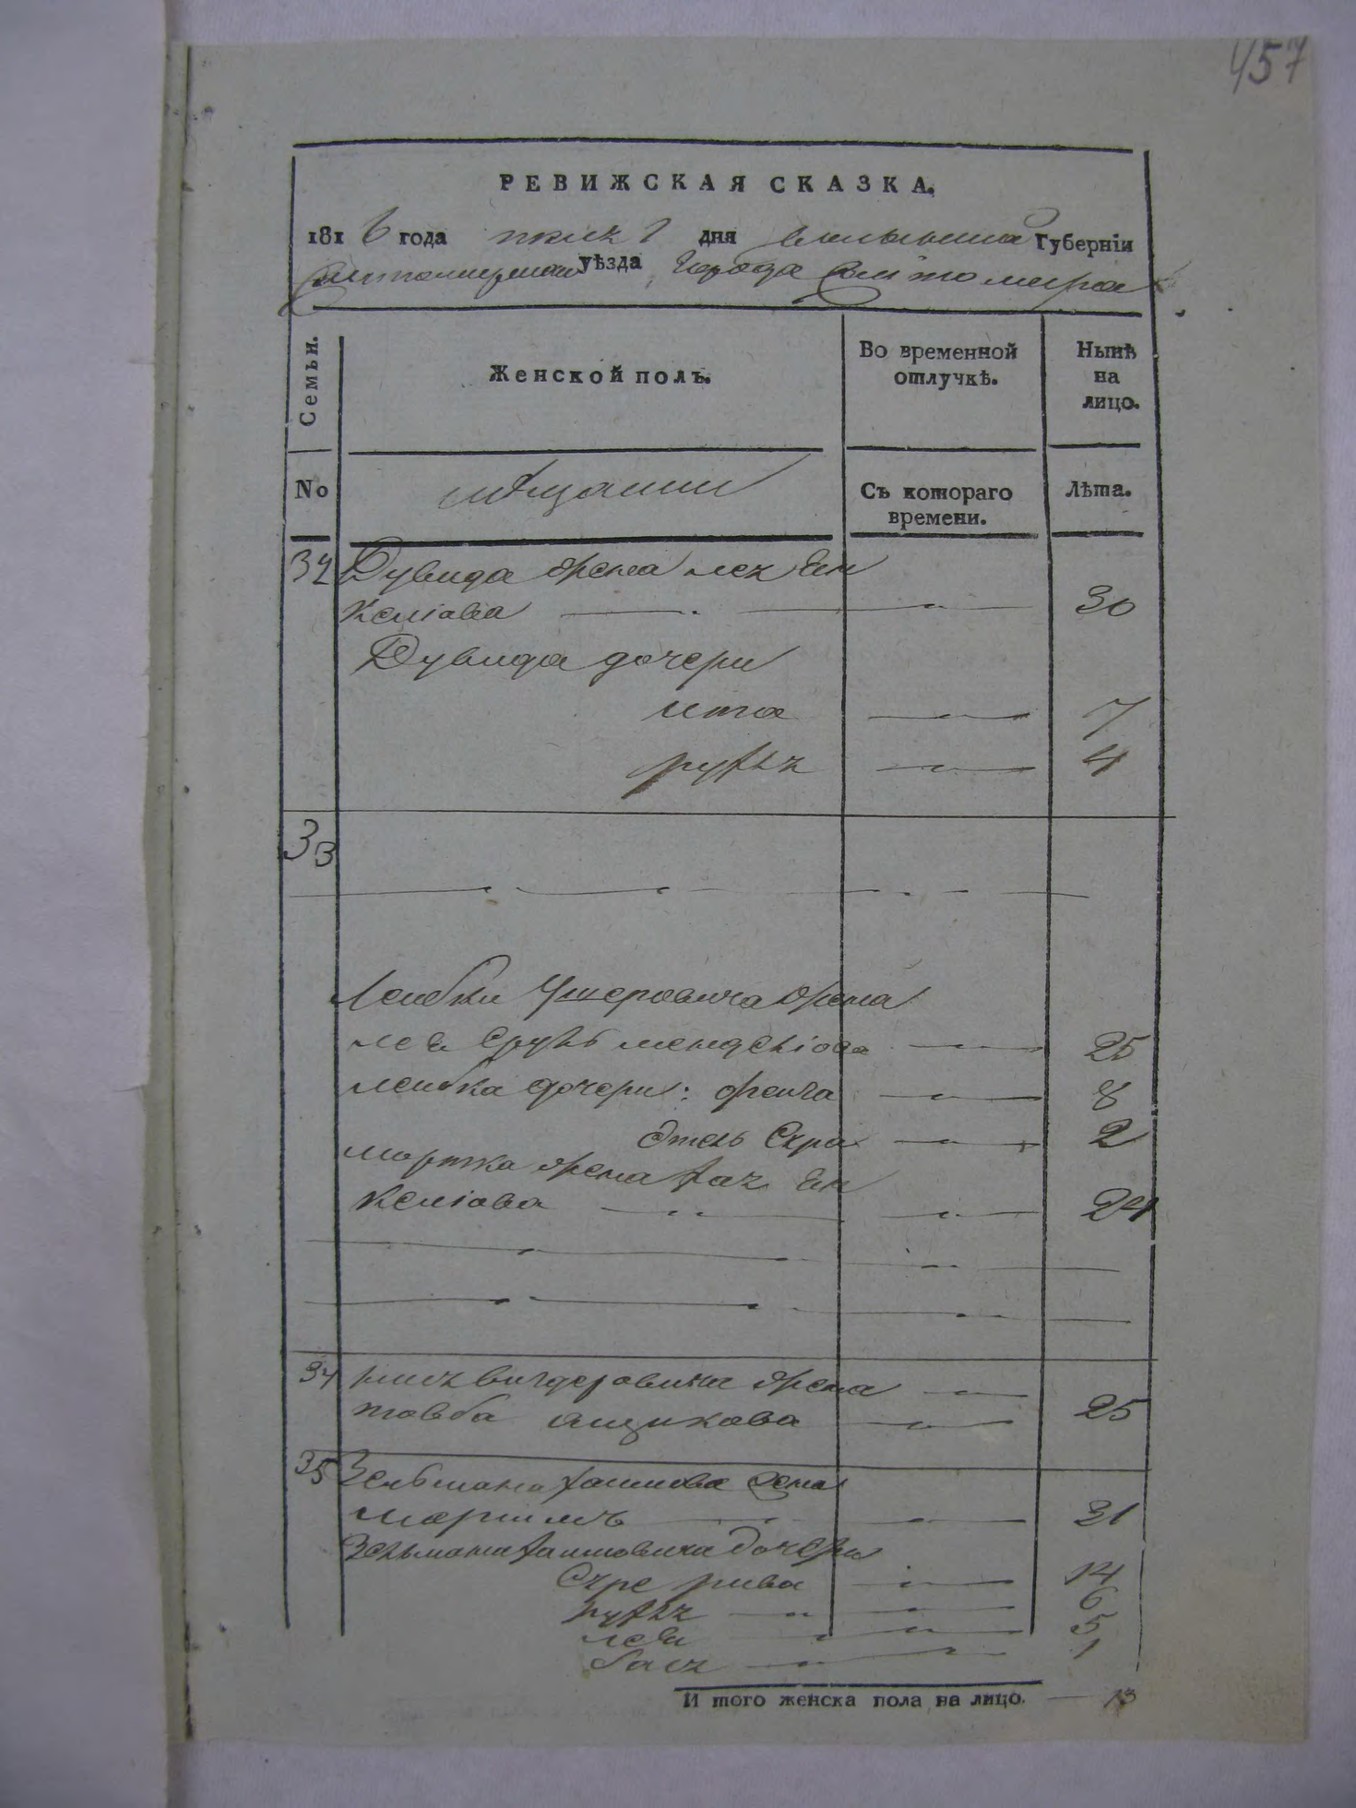 457
РЕВИЖСКАЯ СКАЗКА.
1816 года дня Губерніи
уѣзда Города Житомира
Семьи.
Женской полъ.
Во временной отлучкѣ.
Нынѣ на лицо.
No
мѣщании
Съ котораго времени.
Лѣта.
32 Дувида жена лея Ен
келіова 30
Дувида дочери
ита 7
рухль 4
33
Лейбки Ушеровича жена
Сруль менделіова 25
лейбка дочери: фейга 8
Этель Сура 2
мортка жена хая Ен
келіова 24
34 вигдеровича жена
товба ащикова 25
35 Зельмана хаимова жена
маріимъ 31
Зельмана хаимовича дочери
Суре рива 14
рухль 6
лея 5
бася 1
И того женска пола на лицо. 13